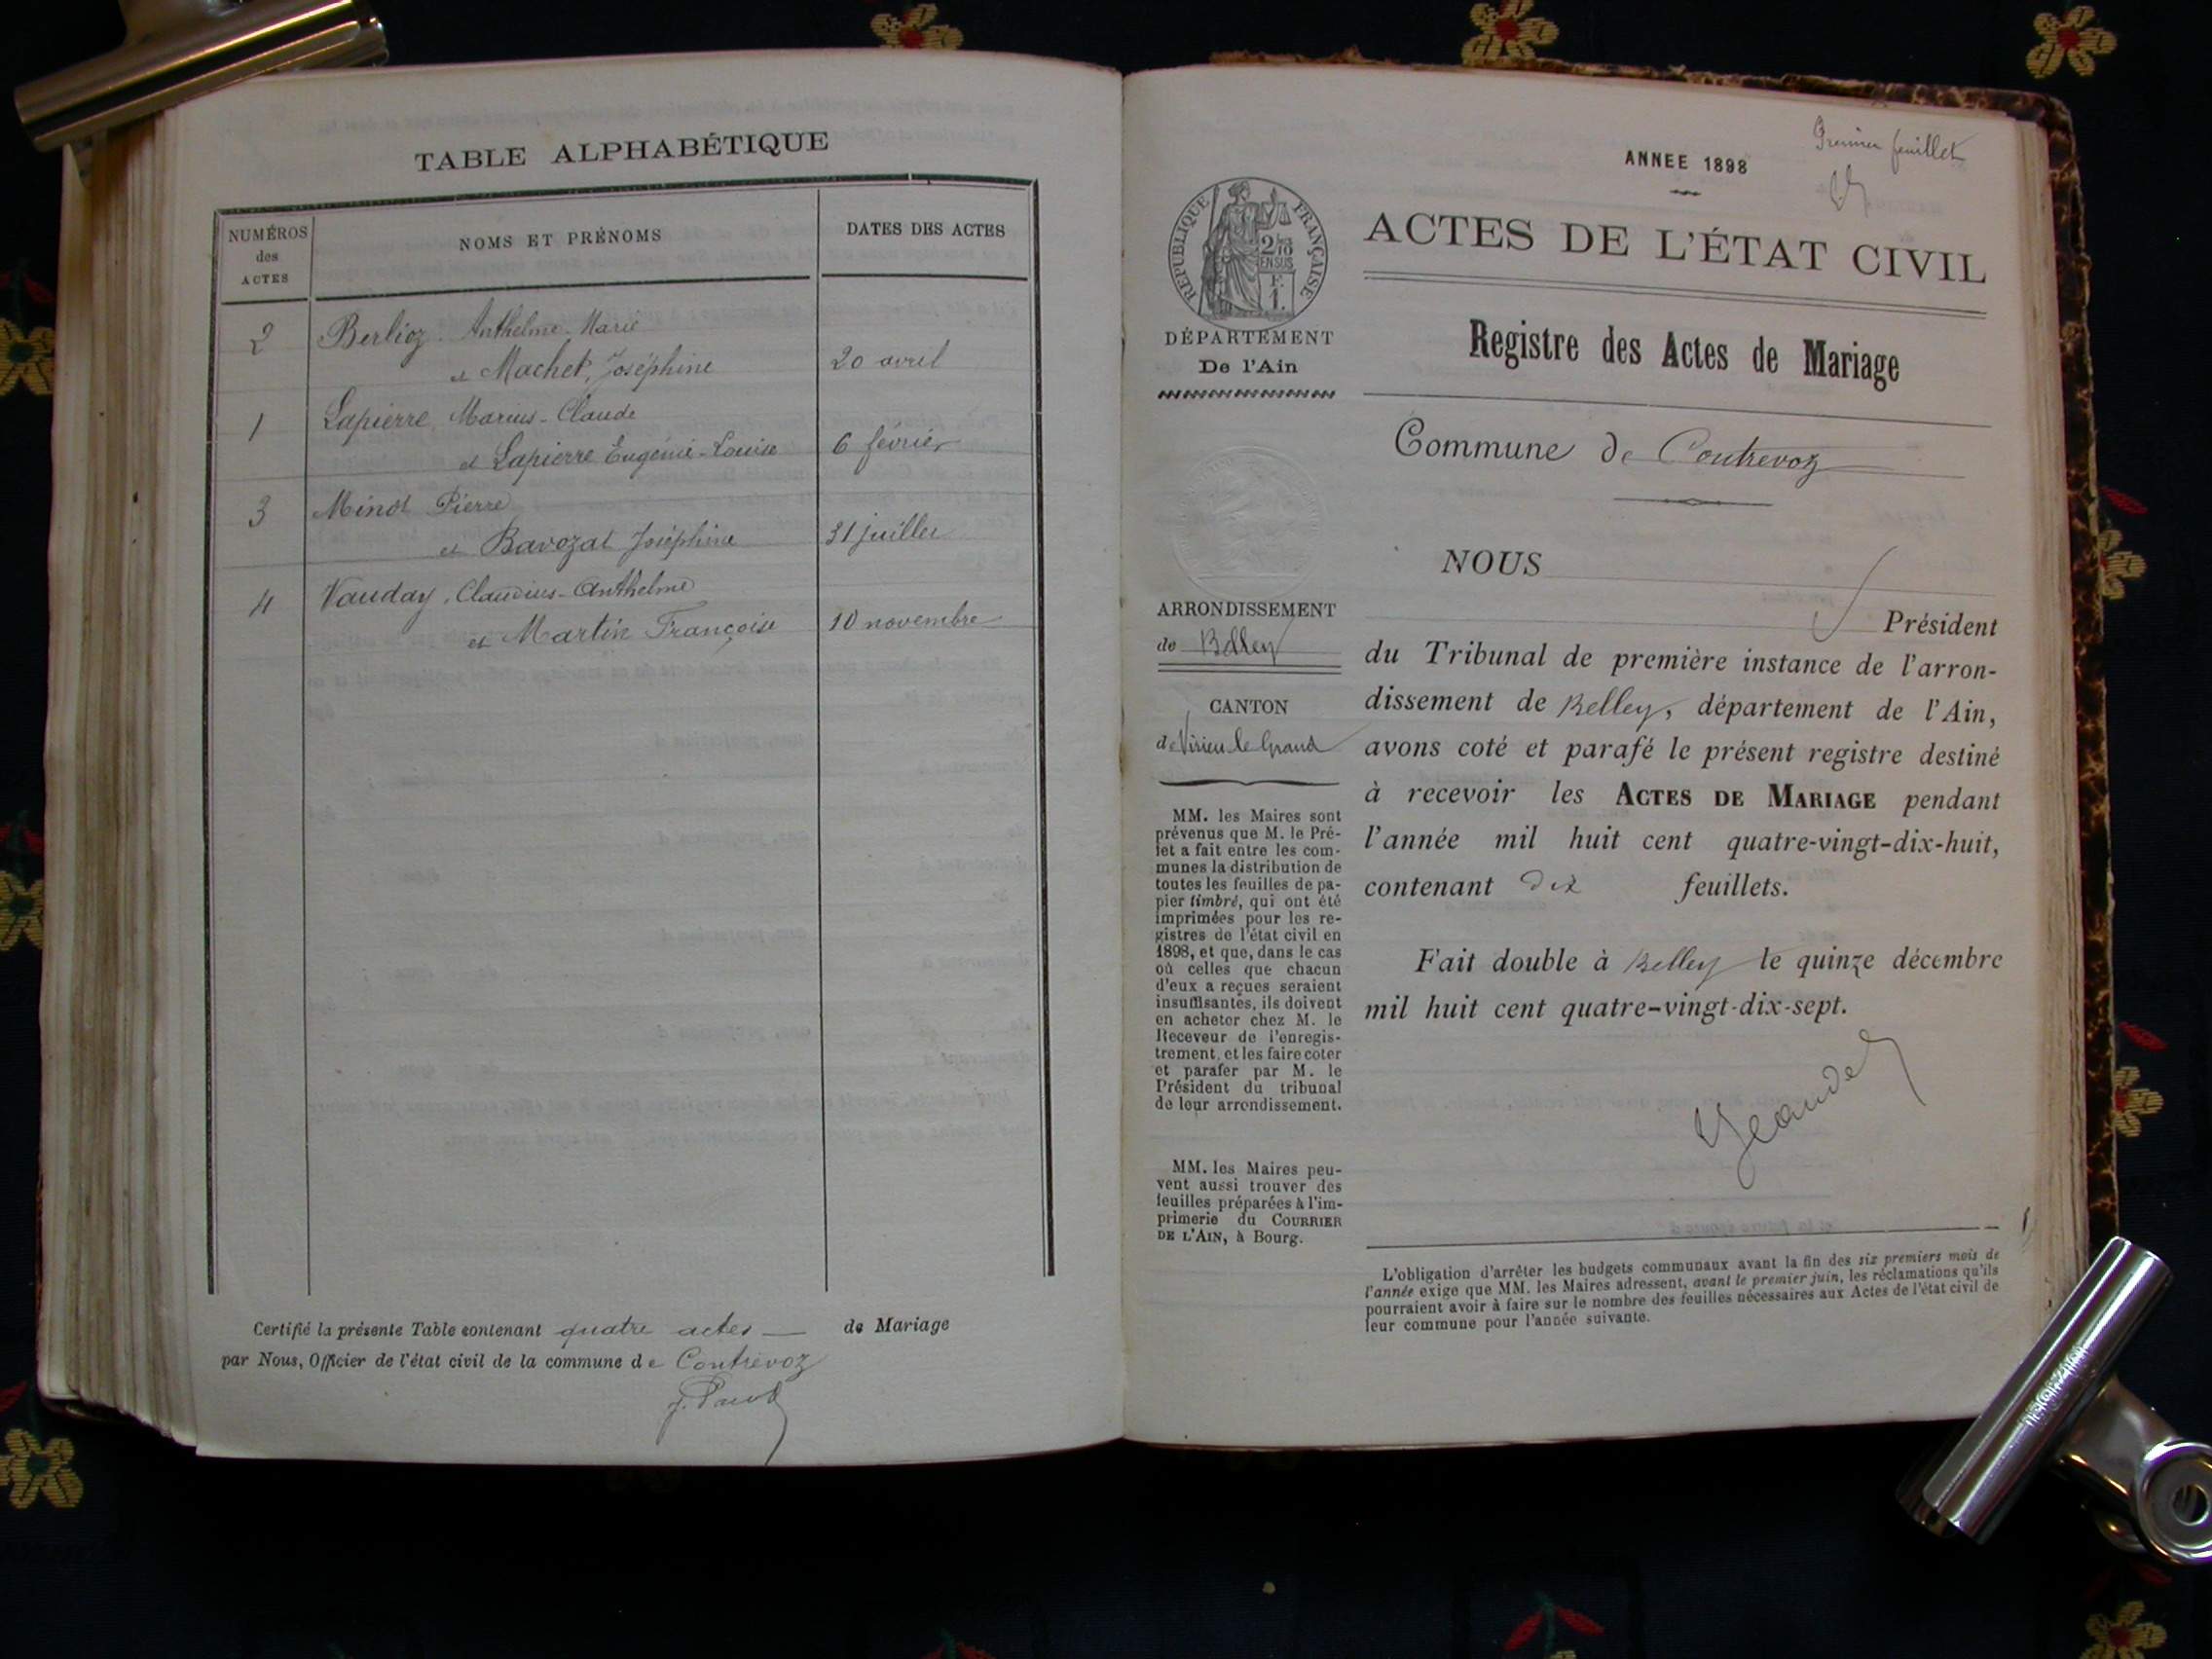 TABLE ALPHABÉTIQUE
NUMÉROS des ACTES
NOMS ET PRÉNOMS
DATES DES ACTES
2 Berlioz Anthelme-Marie
et Machet, Joséphine 20 avril
1 Lapierre, Marius-Claude
et Lapierre Eugénie-Louise 6 février
3 Minot Pierre
et Bavozat Joséphine 31 juillet
4 Vauday, Claudius-Anthelme
et Martin Françoise 10 novembre
Certifié la présente Table contenant quatre actes de Mariage
par Nous, Officier de l'état civil de la commune de Contrevoz
Premier feuillet
ANNEE 1898
RÉPUBLIQUE FRANÇAISE
2/10 EN SUS
F. 1.
ACTES DE L'ÉTAT CIVIL
DÉPARTEMENT
De l'Ain
Registre des Actes de Mariage
Commune de Contrevoz
ARRONDISSEMENT
de Belley
CANTON
de Virieu-le-Grand
MM. les Maires sont
prévenus que M. le Pré-
fet a fait entre les com-
munes la distribution de
toutes les feuilles de pa-
pier timbré, qui ont été
imprimées pour les re-
gistres de l'état civil en
1898, et que, dans le cas
où celles que chacun
d'eux a reçues seraient
insuffisantes, ils doivent
en acheter chez M. le
Receveur de l'enregis-
trement, et les faire coter
et parafer par M. le
Président du tribunal
de leur arrondissement.
MM. les Maires peu-
vent aussi trouver des
feuilles préparées à l'im-
primerie du COURRIER
DE L'AIN, à Bourg.
NOUS
Président
du Tribunal de première instance de l'arron-
dissement de Belley, département de l'Ain,
avons coté et parafé le présent registre destiné
à recevoir les ACTES DE MARIAGE pendant
l'année mil huit cent quatre-vingt-dix-huit,
contenant dix feuillets.
Fait double à Belley le quinze décembre
mil huit cent quatre-vingt-dix-sept.
L'obligation d'arrêter les budgets communaux avant la fin des six premiers mois de
l'année exige que MM. les Maires adressent, avant le premier juin, les réclamations qu'ils
pourraient avoir à faire sur le nombre des feuilles nécessaires aux Actes de l'état civil de
leur commune pour l'année suivante.